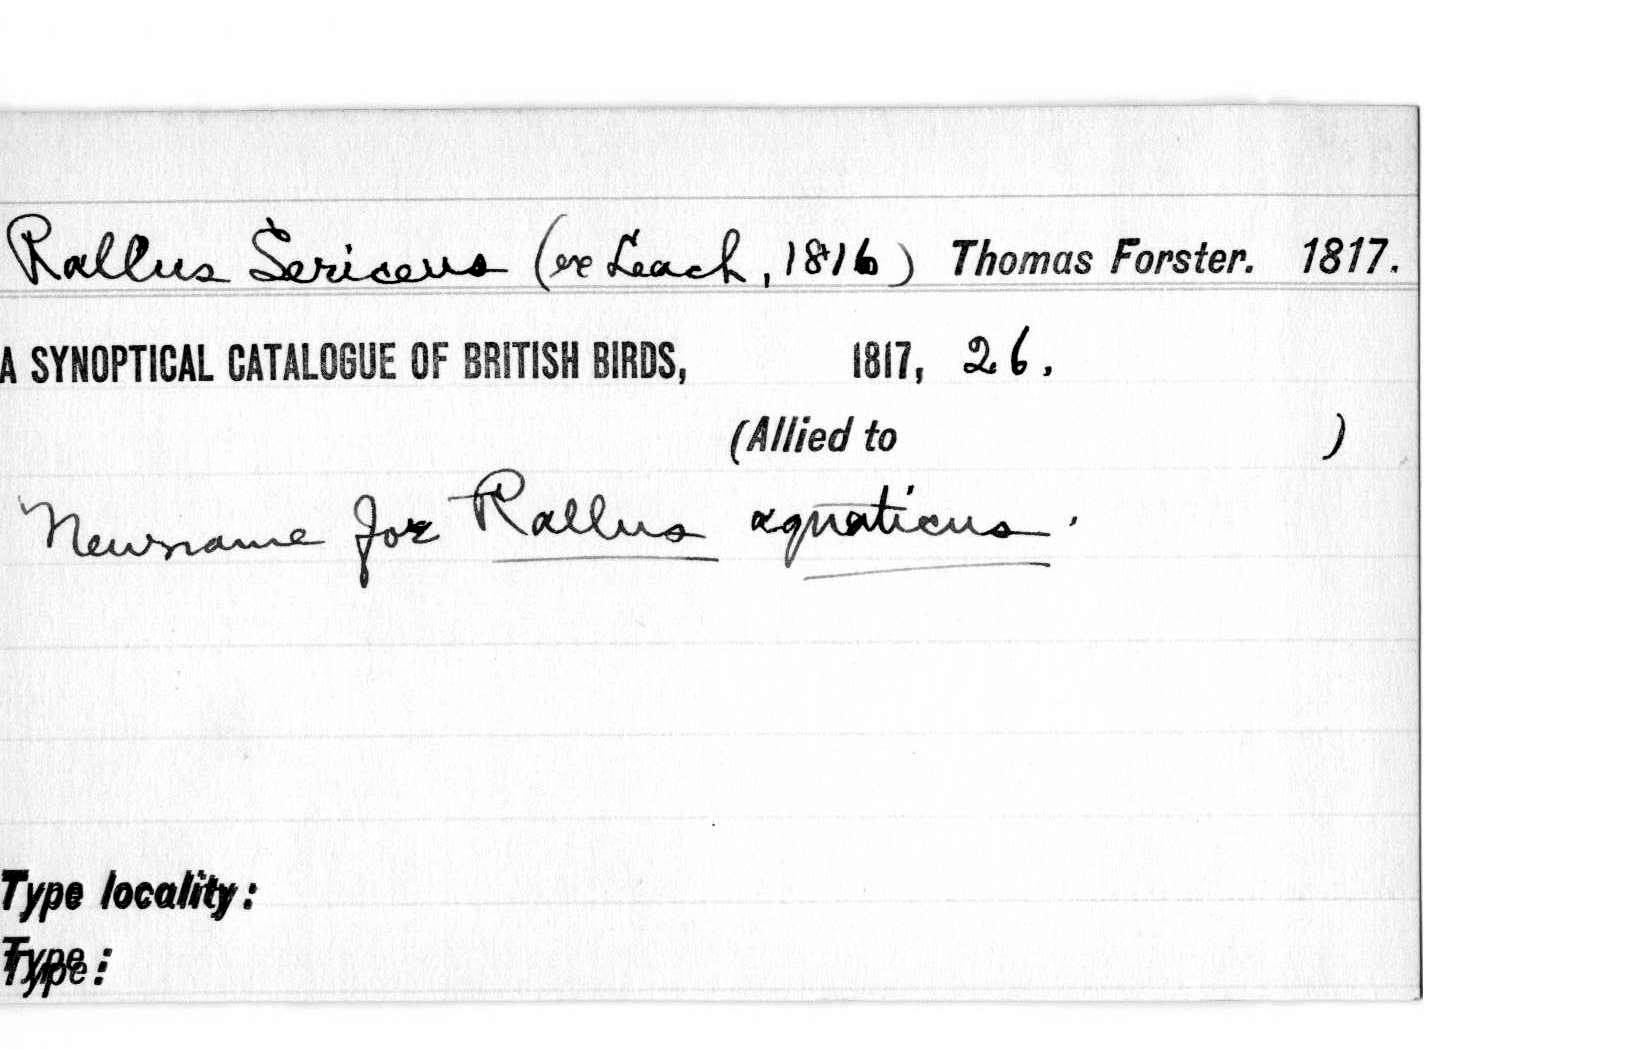 Rallus Sericeus (ex Leach, 1816) Thomas Forster. 1817.
A SYNOPTICAL CATALOGUE OF BRITISH BIRDS, 1817, 26.
(Allied to )
New name for Rallus aquaticus.
Type locality:
Type: